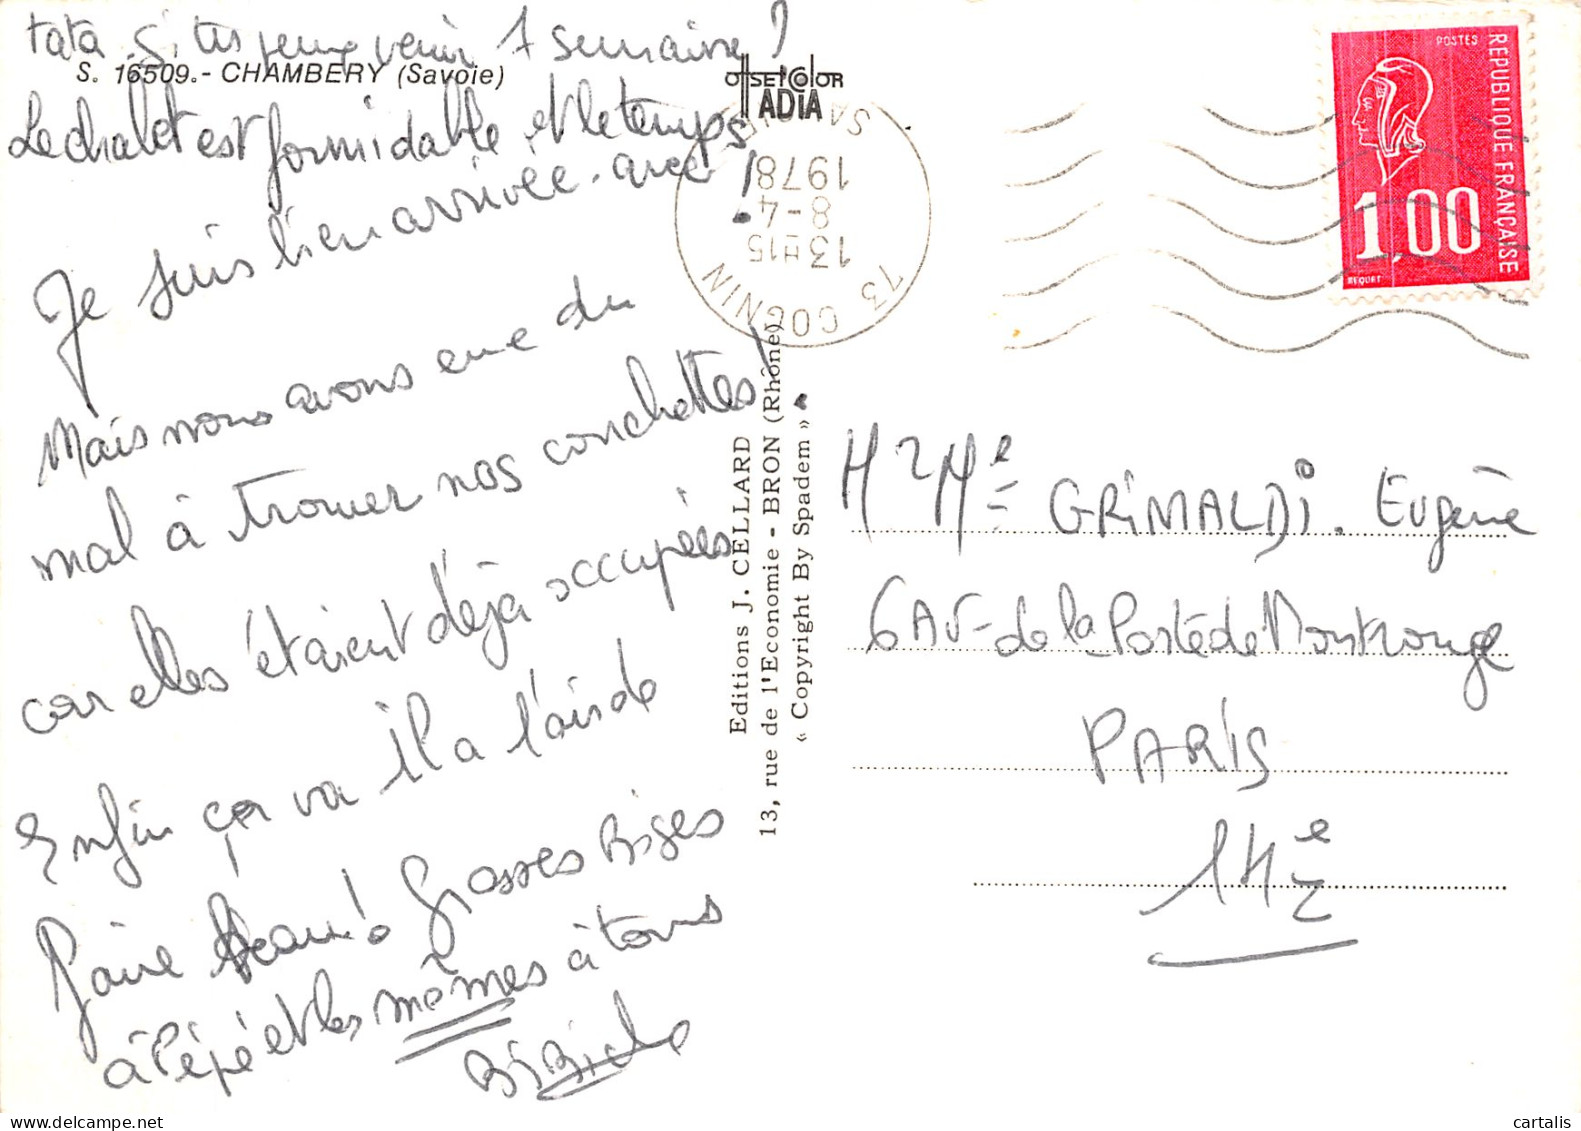 tata. Si tu peux venir 1 semaine?
S. 16509.- CHAMBERY (Savoie)
Le chalet est formidable et le temps
aussi !
Je suis bien arrivée. avec
Mais nous avons eue du
mal à trouver nos couchettes!
car elles étaient déjà occupées
Enfin ça va il a l'air de
faire beau! Grosses Bises
à Pépé et les mêmes à tous
OffSEtColOR
ADIA
73 COGNIN
13 H15
8-4
1978
SAVOIE
Editions J. CELLARD
13, rue de l'Economie - BRON (Rhône)
« Copyright By Spadem »
POSTES
REPUBLIQUE FRANÇAISE
1,00
BEQUET
Mr Me GRIMALDI. Eugène
6 AV- de la Porte de Montrouge
PARIS
14e
cartalis